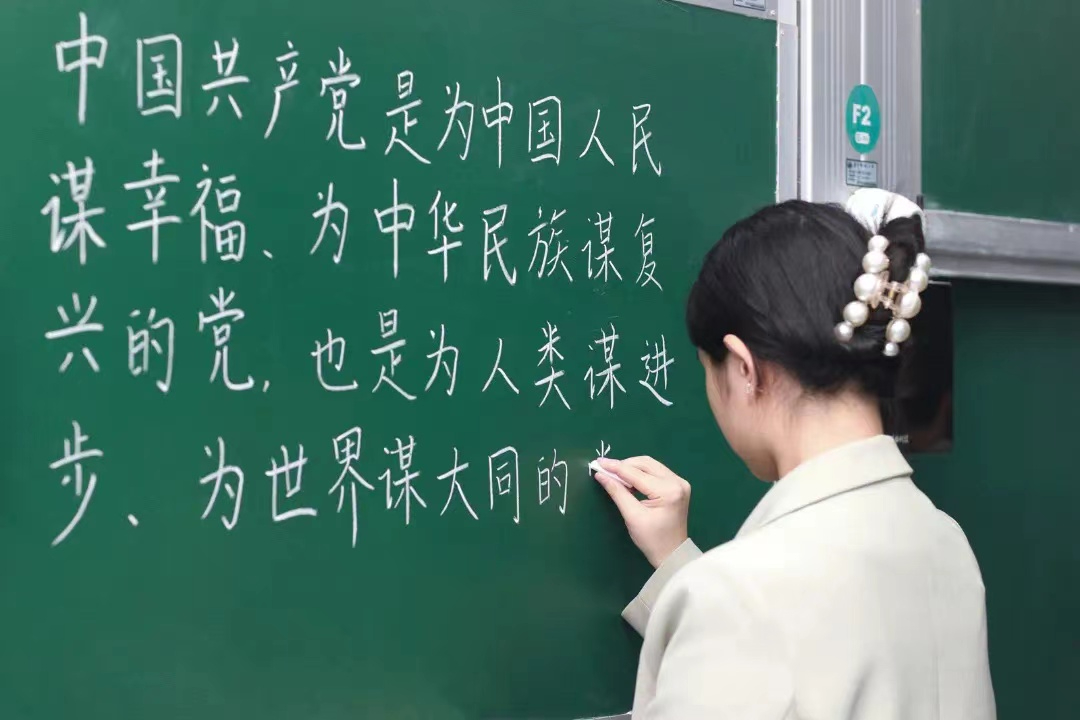 中国共产党是为中国人民
谋幸福、为中华民族谋复
兴的党，也是为人类谋进
步、为世界谋大同的
F2